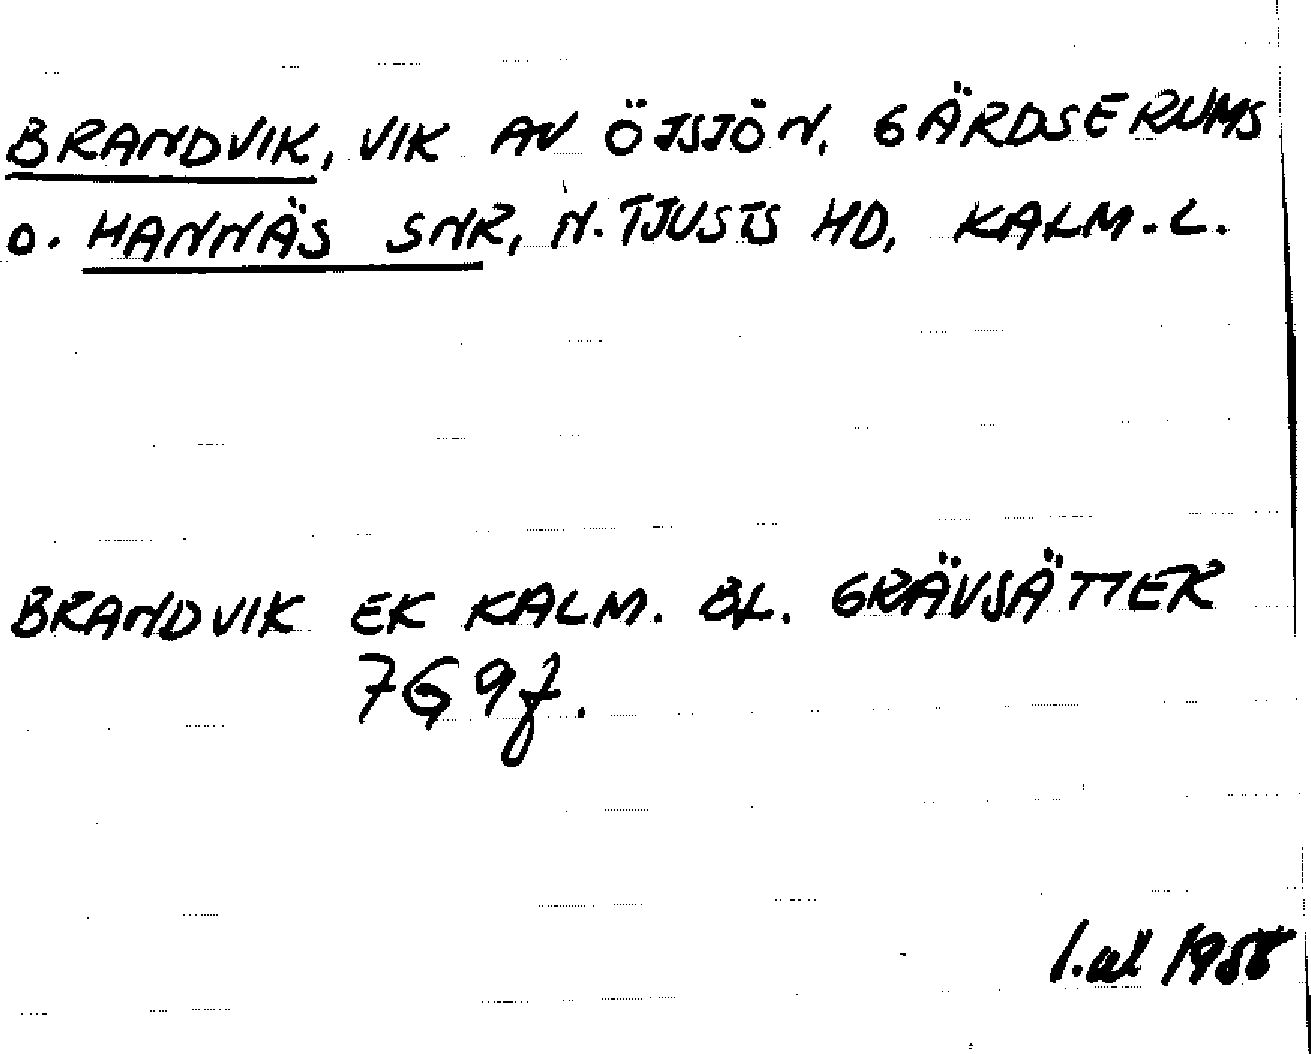 BRANDVIK, VIK AV ÖJSJÖN, GÄRDSERUMS
O. HANNÄS SNR, N. TJUSTS HD, KALM. L.
BRANDVIK EK KALM. BL. GRÄVSÄTTER
7G 9f.
1958